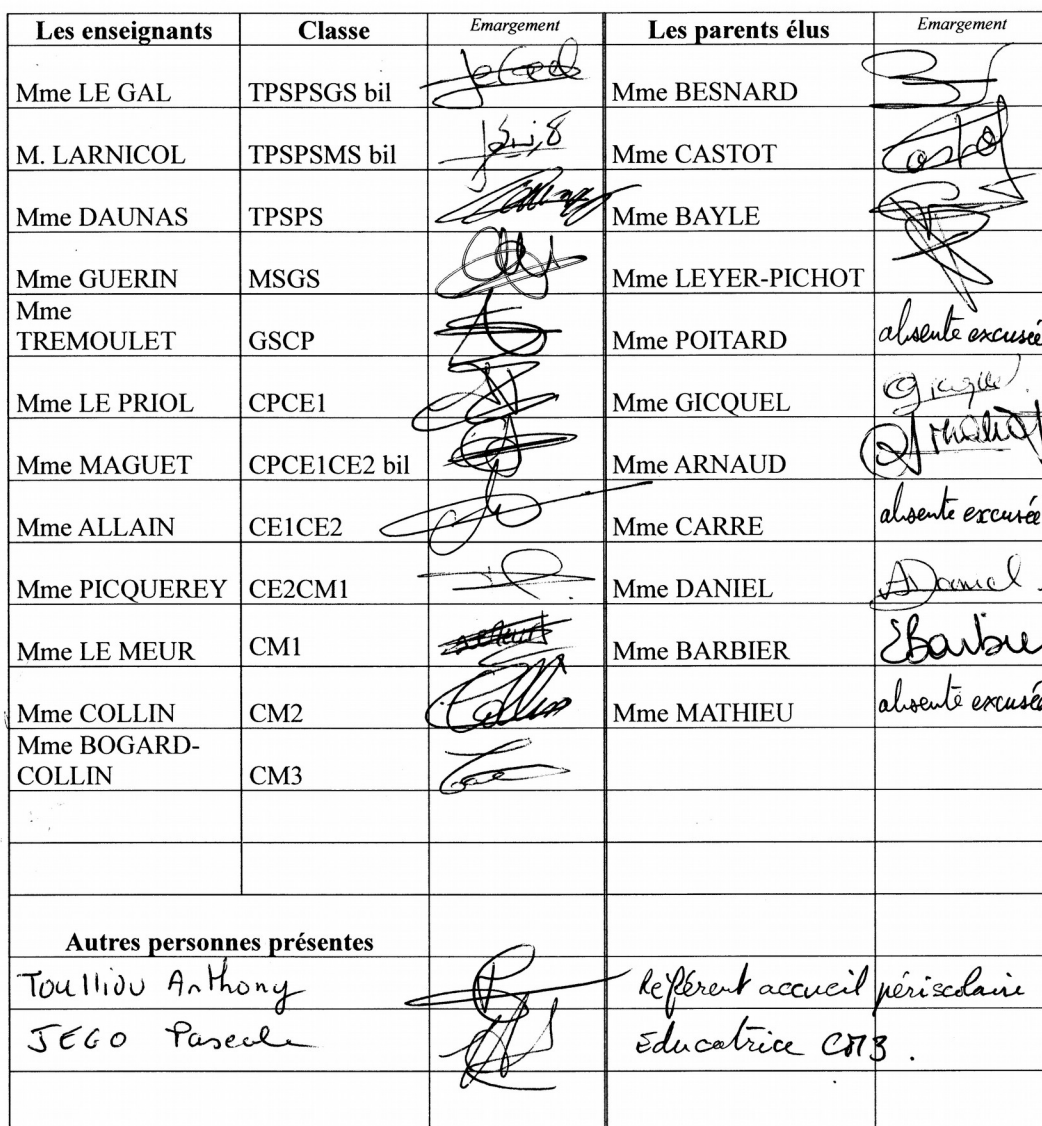 Les enseignants Classe Emargement Les parents élus Emargement
Mme LE GAL TPSPSGS bil Mme BESNARD
M. LARNICOL TPSPSMS bil Mme CASTOT Castot
Mme DAUNAS TPSPS Mme BAYLE
Mme GUERIN MSGS Mme LEYER-PICHOT
Mme
TREMOULET GSCP Mme POITARD absente excusée
Mme LE PRIOL CPCE1 Mme GICQUEL Gicquel
Mme MAGUET CPCE1CE2 bil Mme ARNAUD
Mme ALLAIN CE1CE2 Mme CARRE absente excusée
Mme PICQUEREY CE2CM1 Mme DANIEL ADaniel
Mme LE MEUR CM1 Mme BARBIER EBarbie
Mme COLLIN CM2 Collin Mme MATHIEU absente excusée
Mme BOGARD-
COLLIN CM3
Autres personnes présentes
Toullidu Anthony Référent accueil périscolaire
JEGO Pascale Educatrice CM3.